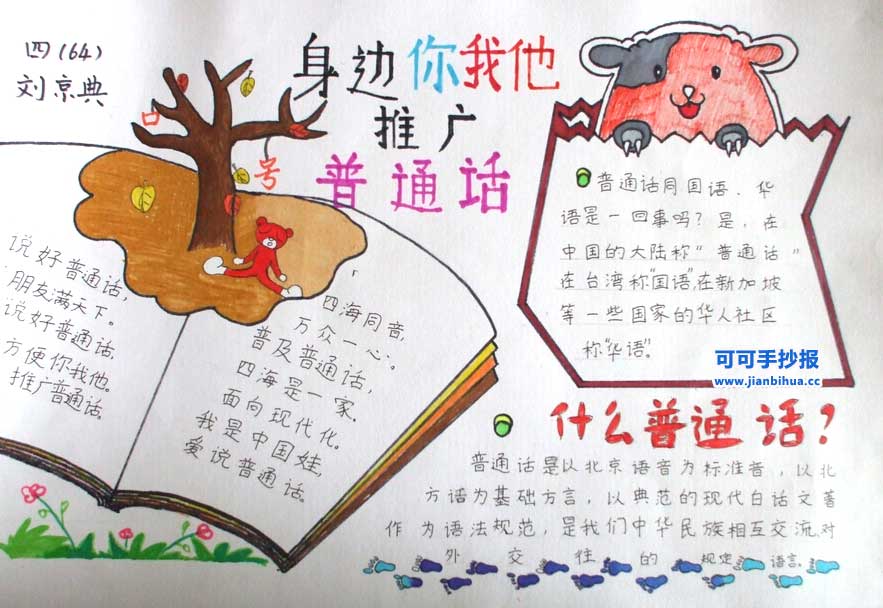 四(64)
刘京典
身边你我他
推广
普通话
口
号
说好普通话,
朋友满天下。
说好普通话,
方便你我他。
推广普通话。
四海同音,
万众一心。
普及普通话,
四海是一家.
面向现代化。
我是中国娃,
爱说普通话。
普通话同国语、华
语是一回事吗?是,在
中国的大陆称"普通话"
在台湾称"国语",在新加坡
等一些国家的华人社区
称"华语"。
可可手抄报
www.jianbihua.cc
什么普通话?
普通话是以北京语音为标准音,以北
方话为基础方言,以典范的现代白话文著
作为语法规范,是我们中华民族相互交流对
外交往的规定语言.